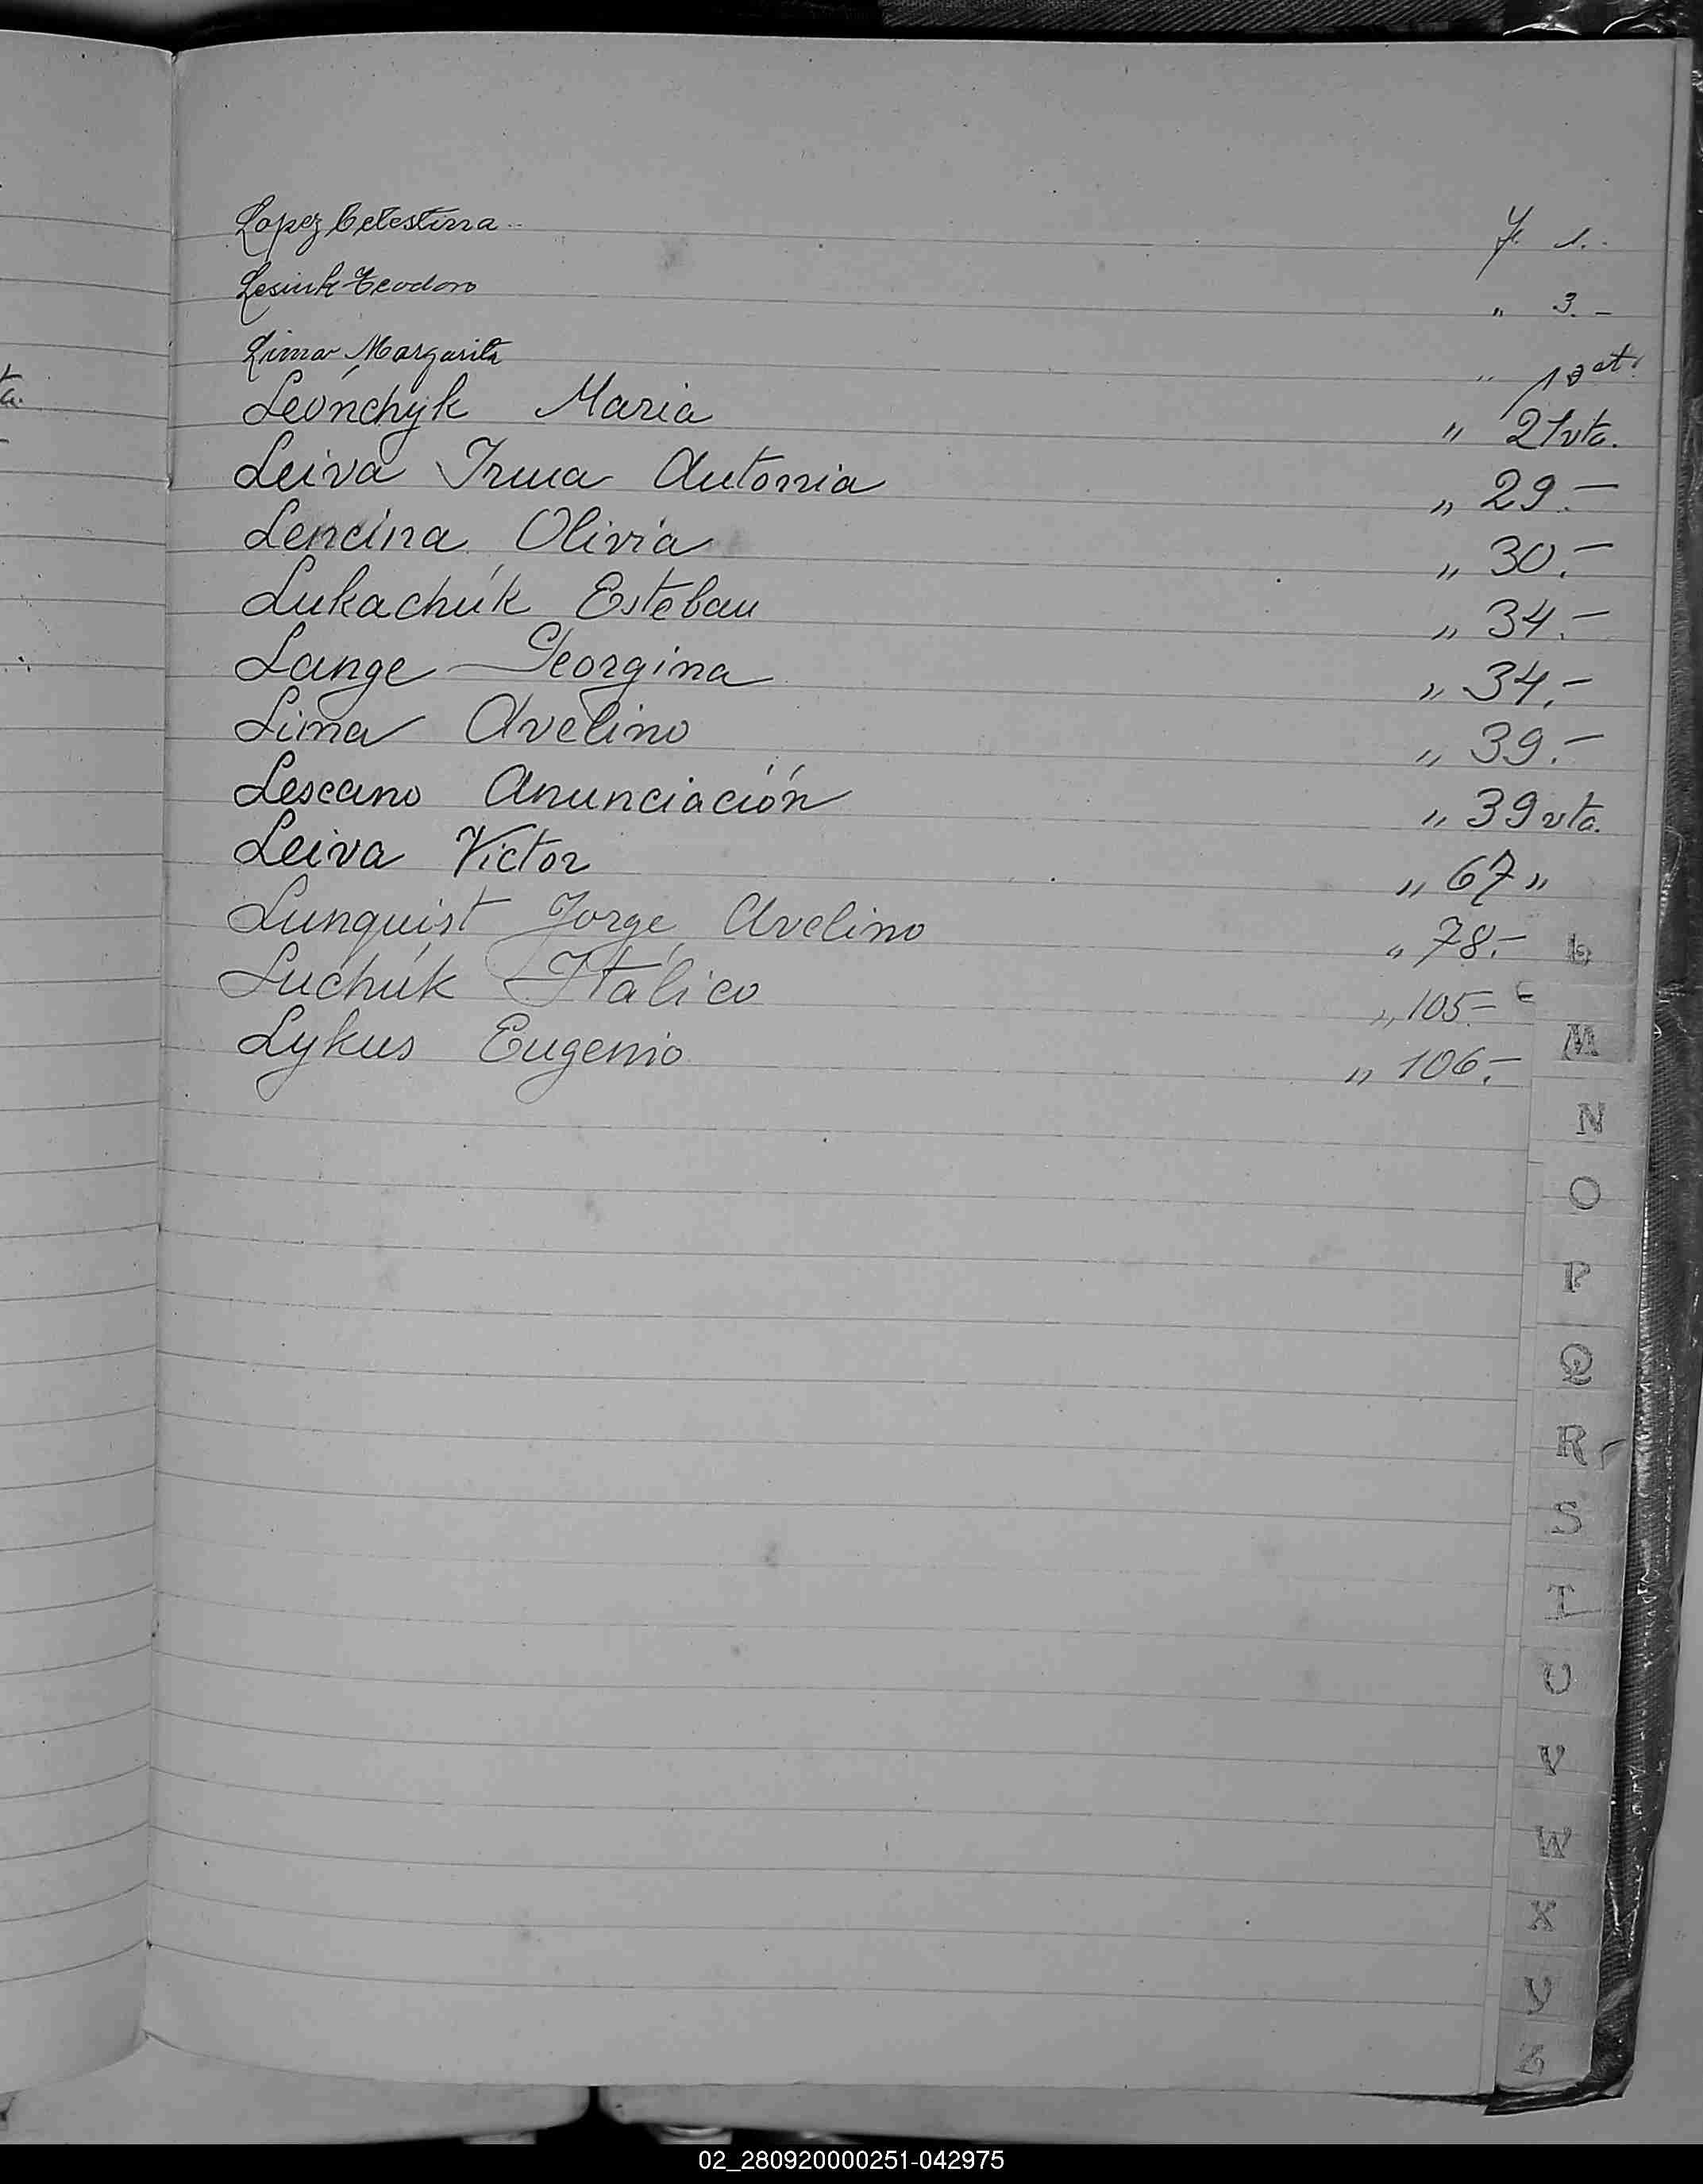 Lopez Celestina.. f. 1.-
Lesiuk Teodoro " 3.-
Lima Margarita "
Leónchyk Maria " 21vta.
Leiva Irma Antonia " 29.-
Lencina Olivia " 30.-
Lukachuk Esteban " 34.-
Lange Georgina " 34.-
Lima Avelino " 39.-
Lescano Anunciación " 39vta.
Leiva Victor " 67 "
Lunquist Jorge Avelino " 78.-
Luchuk Itálico " 105.-
Lykus Eugenio " 106.-
L
M
N
O
P
Q
R
S
T
U
V
W
X
Y
Z
02_280920000251-042975